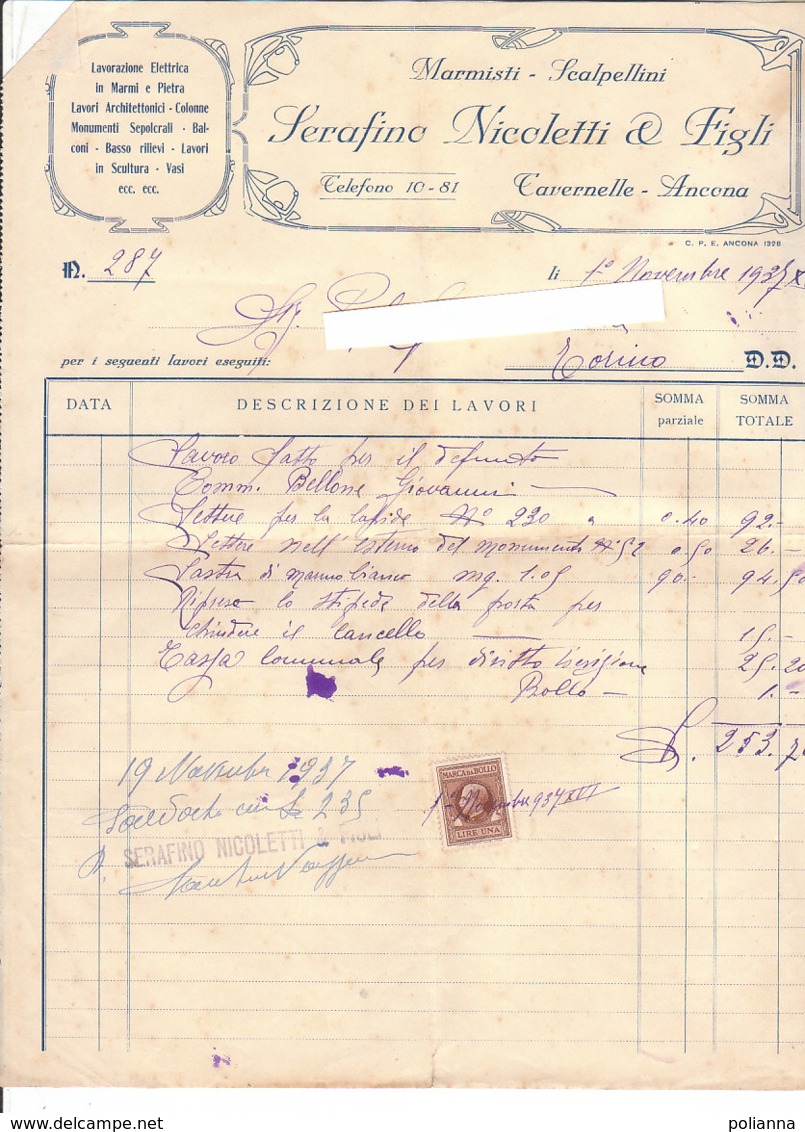 Lavorazione Elettrica
in Marmi e Pietra
Lavori Architettonici - Colonne
Monumenti Sepolcrali - Bal-
coni - Basso rilievi - Lavori
in Scultura - Vasi
ecc. ecc.
Marmisti - Scalpellini
Serafino Nicoletti & Figli
Telefono 10-81 Tavernelle - Ancona
C. P. E. ANCONA 1328
N. 287 li 1° Novembre 1937
Sig.
per i seguenti lavori eseguiti: Torino D.D.
DATA DESCRIZIONE DEI LAVORI SOMMA parziale SOMMA TOTALE
Lavoro fatto per il defunto
Comm. Bellone Giovanni
Lettere per la lapide N° 230 a 0.40 92.-
Lettere nell'esterno del monumento N° 52 0.50 26.-
Lastra di marmo bianco mq. 1.05 90.- 94.50
Ripreso lo stipide della porta per
chiudere il cancello 15.-
Tassa Comunale per diritto 25.20
Bollo - 1.-
L. 253.70
19 Novembre 1937
MARCA DA BOLLO
LIRE UNA
1- Novembre 937 XVI
L 235
SERAFINO NICOLETTI & FIGLI
P.
polianna